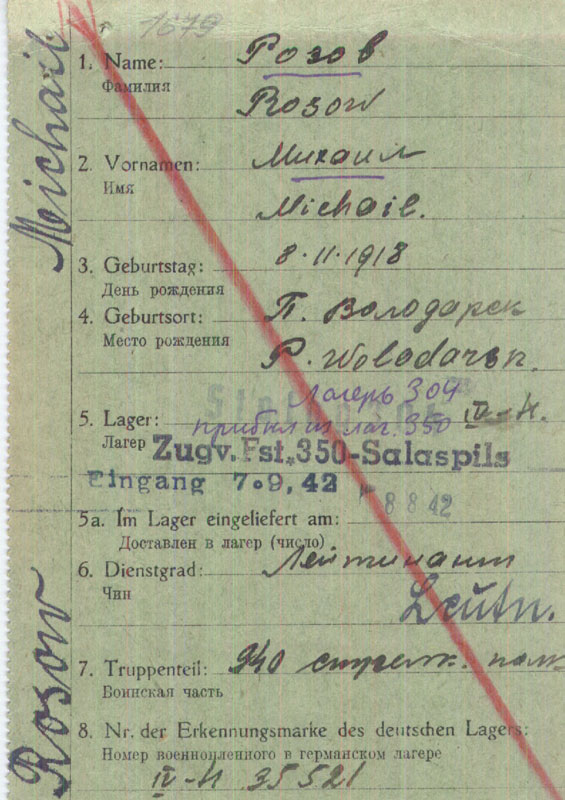 1679
1. Name: Розов
Фамилия
Rosow
2. Vornamen: Михаил
Имя
Michail.
3. Geburtstag: 8.11.1918
День рождения
4. Geburtsort: П. Володарск
Место рождения
P. Wolodarsk.
Лагерь 304
5. Lager: прибыл из лаг. 350 IV-H.
Лагер
Zugv. Fst. 350-Salaspils
Eingang 7.9.42
8 8 42
5a. Im Lager eingeliefert am:
Доставлен в лагер (число)
6. Dienstgrad: Лейтинант
Чин
Leutn.
7. Truppenteil: 940 стрелк. полк
Воинская часть
8. Nr. der Erkennungsmarke des deutschen Lagers:
Номер военнопленного в германском лагере
IV-H 35521
Rosow Meichail